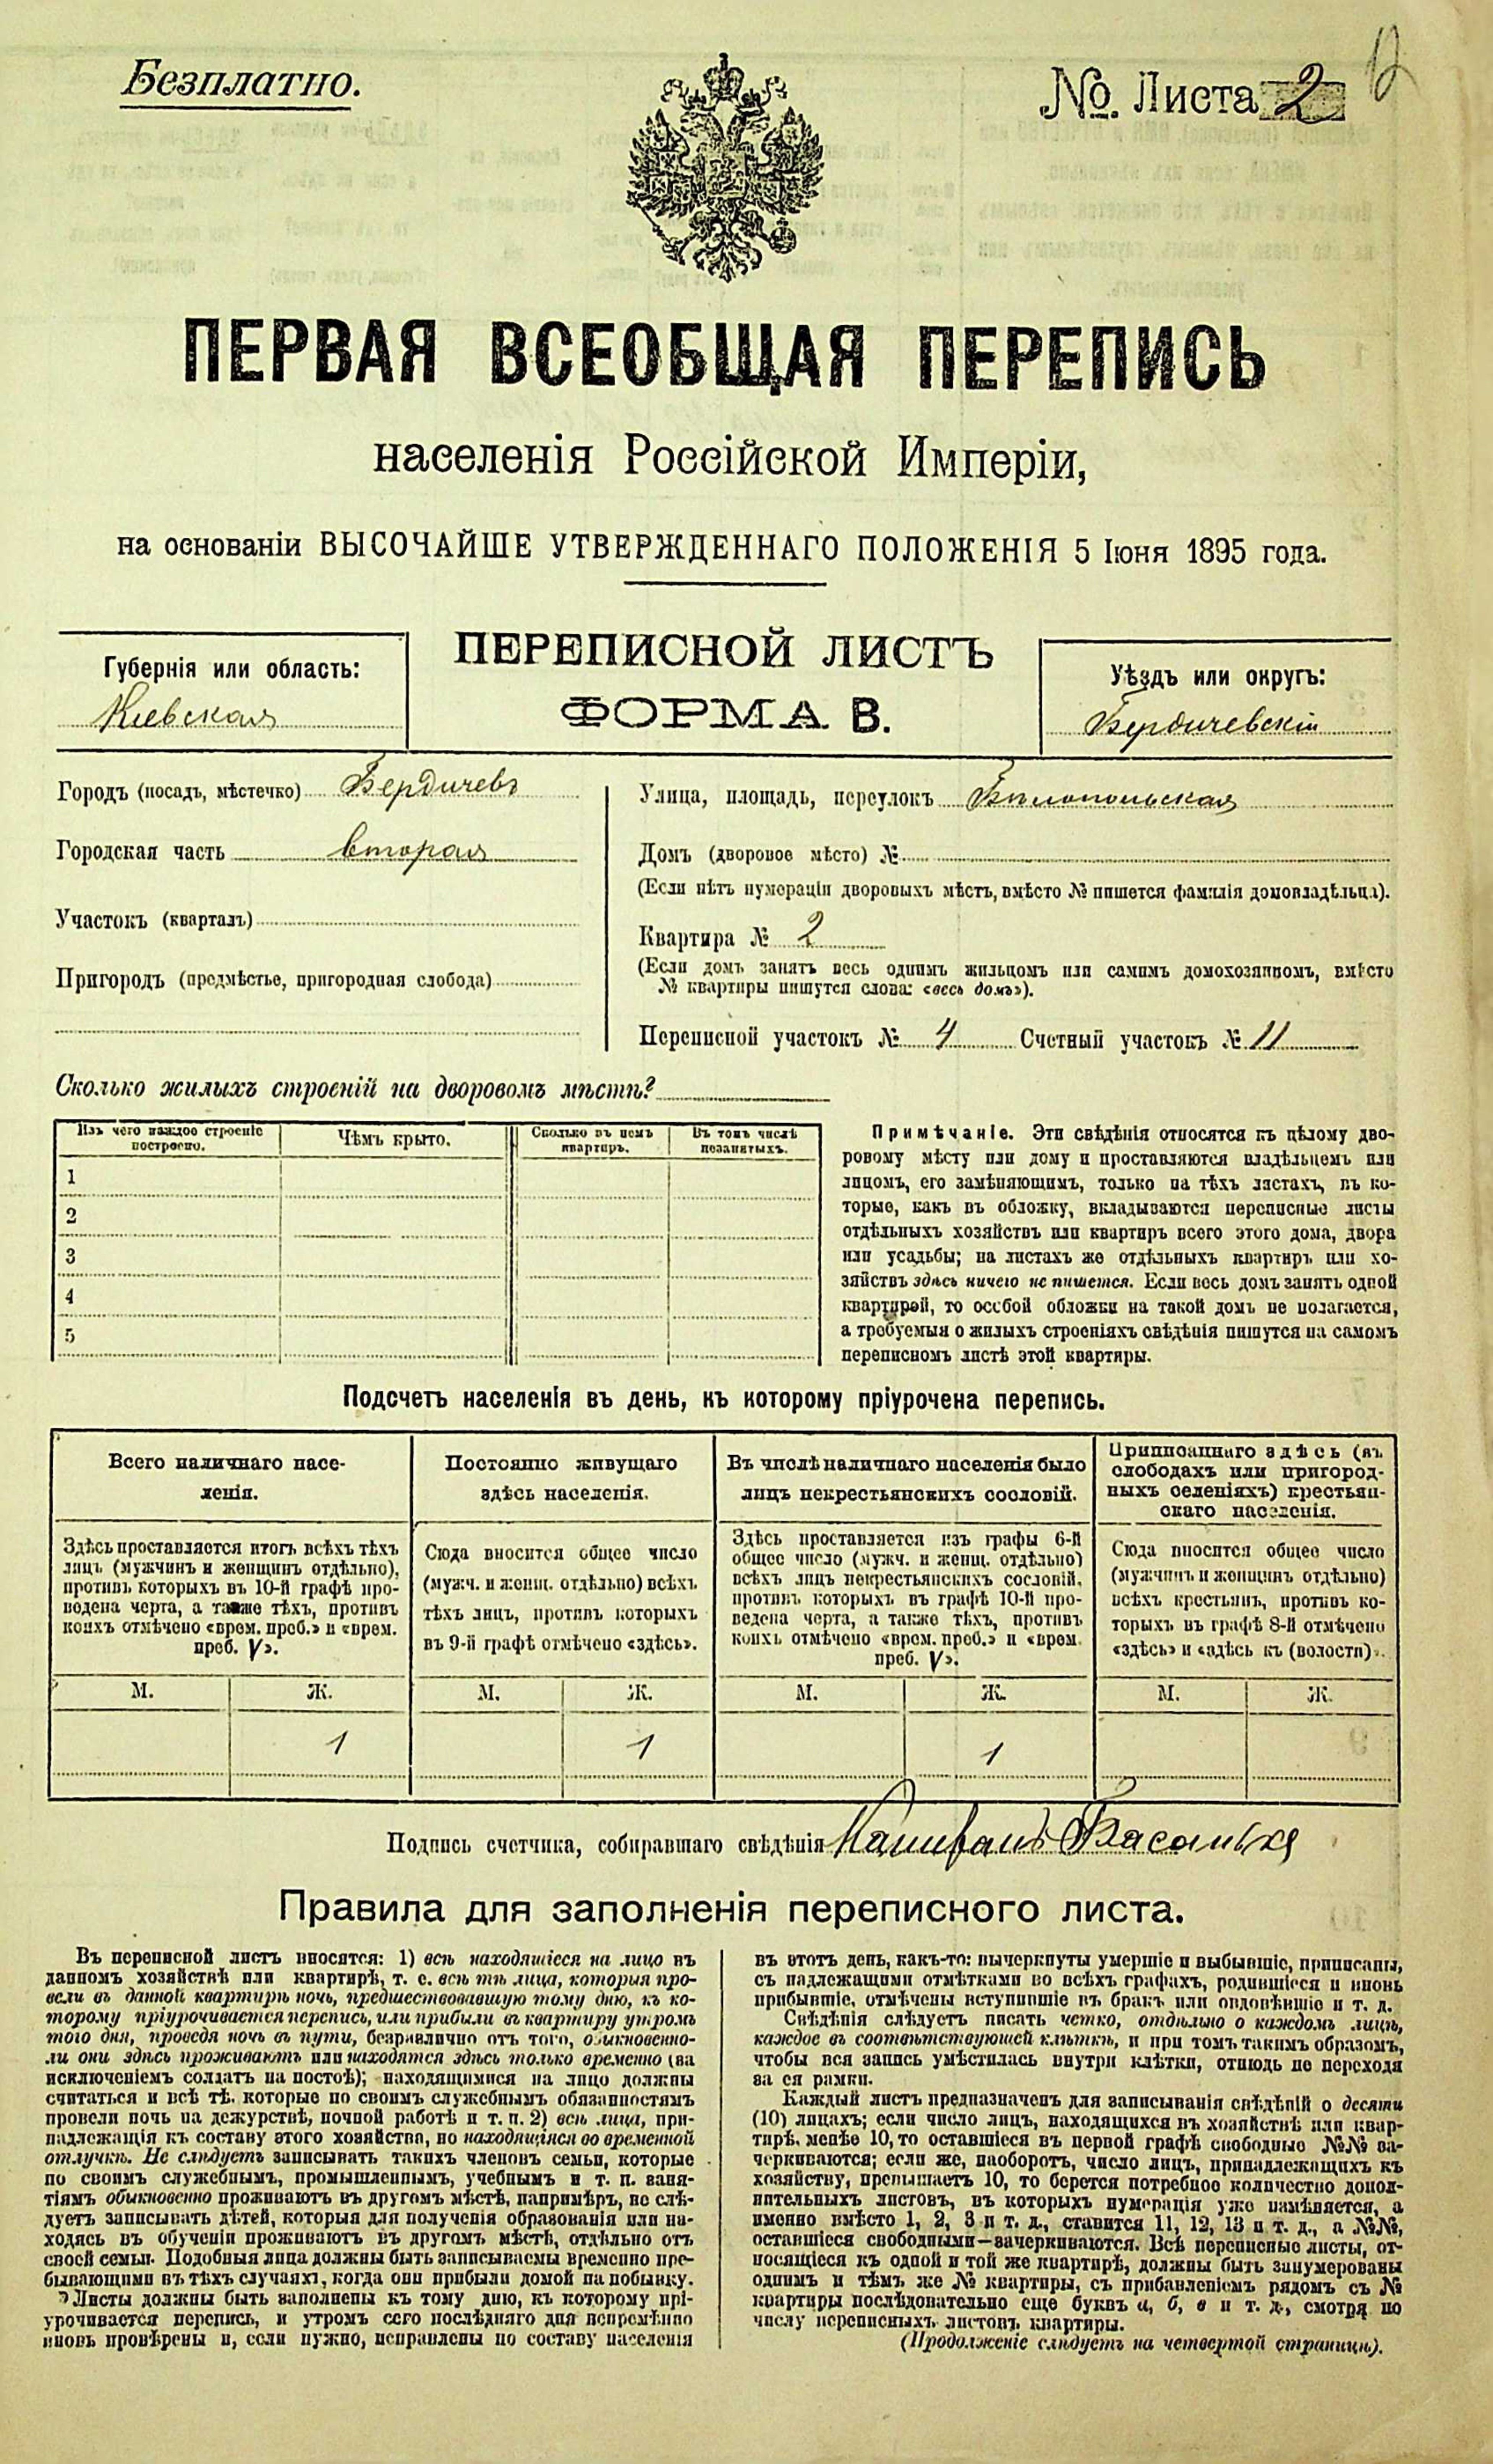 Безплатно.
№ Листа 2
12
ПЕРВАЯ ВСЕОБЩАЯ ПЕРЕПИСЬ
населенія Россійской Имперіи,
на основаніи ВЫСОЧАЙШЕ УТВЕРЖДЕННАГО ПОЛОЖЕНІЯ 5 Іюня 1895 года.
Губернія или область:
Кіевская
ПЕРЕПИСНОЙ ЛИСТЪ
ФОРМА В.
Уѣздъ или округъ:
Бердичевскій
Городъ (посадъ, мѣстечко) Бердичевъ
Городская часть вторая
Участокъ (кварталъ)
Пригородъ (предмѣстье, пригородная слобода)
Улица, площадь, переулокъ Бѣлопольская
Домъ (дворовое мѣсто) №
(Если нѣтъ нумераціи дворовыхъ мѣстъ, вмѣсто № пишется фамилія домовладѣльца).
Квартира № 2
(Если домъ занятъ весь однимъ жильцомъ или самимъ домохозяиномъ, вмѣсто
№ квартиры пишутся слова: «весь домъ»).
Переписной участокъ № 4 Счетный участокъ № 11
Сколько жилыхъ строеній на дворовомъ мѣстѣ?
Изъ чего каждое строеніе построено.
Чѣмъ крыто.
Сколько въ немъ квартиръ.
Въ томъ числѣ незанятыхъ.
1
2
3
4
5
Примѣчаніе. Эти свѣдѣнія относятся къ цѣлому дво-
ровому мѣсту или дому и проставляются владѣльцемъ или
лицомъ, его замѣняющимъ, только на тѣхъ листахъ, въ ко-
торые, какъ въ обложку, вкладываются переписные листы
отдѣльныхъ хозяйствъ или квартиръ всего этого дома, двора
или усадьбы; на листахъ же отдѣльныхъ квартиръ или хо-
зяйствъ здѣсь ничего не пишется. Если весь домъ занятъ одной
квартирой, то особой обложки на такой домъ не полагается,
а требуемыя о жилыхъ строеніяхъ свѣдѣнія пишутся на самомъ
переписномъ листѣ этой квартиры.
Подсчетъ населенія въ день, къ которому пріурочена перепись.
Всего наличнаго насе-
ленія.
Здѣсь проставляется итогъ всѣхъ тѣхъ
лицъ (мужчинъ и женщинъ отдѣльно),
противъ которыхъ въ 10-й графѣ про-
ведена черта, а также тѣхъ, противъ
коихъ отмѣчено «врем. преб.» и «врем.
преб. V».
М. Ж.
1
Постоянно живущаго
здѣсь населенія.
Сюда вносится общее число
(мужч. и женщ. отдѣльно) всѣхъ
тѣхъ лицъ, противъ которыхъ
въ 9-й графѣ отмѣчено «здѣсь».
М. Ж.
1
Въ числѣ наличнаго населенія было
лицъ некрестьянскихъ сословій.
Здѣсь проставляется изъ графы 6-й
общее число (мужч. и женщ. отдѣльно)
всѣхъ лицъ некрестьянскихъ сословій,
противъ которыхъ въ графѣ 10-й про-
ведена черта, а также тѣхъ, противъ
коихъ отмѣчено «врем. преб.» и «врем.
преб. V».
М. Ж.
1
Приписаннаго здѣсь (въ
слободахъ или пригород-
ныхъ селеніяхъ) крестьян-
скаго населенія.
Сюда вносится общее число
(мужчинъ и женщинъ отдѣльно)
всѣхъ крестьянъ, противъ ко-
торыхъ въ графѣ 8-й отмѣчено
«здѣсь» и «здѣсь къ (волости)».
М. Ж.
Подпись счетчика, собиравшаго свѣдѣнія
Правила для заполненія переписного листа.
Въ переписной листъ вносятся: 1) всѣ находящіеся на лицо въ
данномъ хозяйствѣ или квартирѣ, т. е. всѣ тѣ лица, которыя про-
вели въ данной квартирѣ ночь, предшествовавшую тому дню, къ ко-
торому пріурочивается перепись, или прибыли въ квартиру утромъ
того дня, проведя ночь въ пути, безразлично отъ того, обыкновенно-
ли они здѣсь проживаютъ или находятся здѣсь только временно (за
исключеніемъ солдатъ на постоѣ); находящимися на лицо должны
считаться и всѣ тѣ, которые по своимъ служебнымъ обязанностямъ
провели ночь на дежурствѣ, ночной работѣ и т. п. 2) всѣ лица, при-
надлежащія къ составу этого хозяйства, но находящіяся во временной
отлучкѣ. Не слѣдуетъ записывать такихъ членовъ семьи, которые
по своимъ служебнымъ, промышленнымъ, учебнымъ и т. п. заня-
тіямъ обыкновенно проживаютъ въ другомъ мѣстѣ, напримѣръ, не слѣ-
дуетъ записывать дѣтей, которыя для полученія образованія или на-
ходясь въ обученіи проживаютъ въ другомъ мѣстѣ, отдѣльно отъ
своей семьи. Подобныя лица должны быть записываемы временно пре-
бывающими въ тѣхъ случаяхъ, когда они прибыли домой на побывку.
Листы должны быть заполнены къ тому дню, къ которому прі-
урочивается перепись, и утромъ сего послѣдняго дня непремѣнно
вновь провѣрены и, если нужно, исправлены по составу населенія
въ этотъ день, какъ-то: вычеркнуты умершіе и выбывшіе, приписаны,
съ надлежащими отмѣтками во всѣхъ графахъ, родившіеся и вновь
прибывшіе, отмѣчены вступившіе въ бракъ или овдовѣвшіе и т. д.
Свѣдѣнія слѣдуетъ писать четко, отдѣльно о каждомъ лицѣ,
каждое въ соотвѣтствующей клѣткѣ, и при томъ такимъ образомъ,
чтобы вся запись умѣстилась внутри клѣтки, отнюдь не переходя
за ея рамки.
Каждый листъ предназначенъ для записыванія свѣдѣній о десяти
(10) лицахъ; если число лицъ, находящихся въ хозяйствѣ или квар-
тирѣ, менѣе 10, то оставшіеся въ первой графѣ свободные №№ за-
черкиваются; если же, наоборотъ, число лицъ, принадлежащихъ къ
хозяйству, превышаетъ 10, то берется потребное количество допол-
нительныхъ листовъ, въ которыхъ нумерація уже измѣняется, а
именно вмѣсто 1, 2, 3 и т. д., ставится 11, 12, 13 и т. д., а №№,
оставшіеся свободными—зачеркиваются. Всѣ переписные листы, от-
носящіеся къ одной и той же квартирѣ, должны быть занумерованы
однимъ и тѣмъ же № квартиры, съ прибавленіемъ рядомъ съ №
квартиры послѣдовательно еще буквъ а, б, в и т. д., смотря по
числу переписныхъ листовъ квартиры.
(Продолженіе слѣдуетъ на четвертой страницѣ).